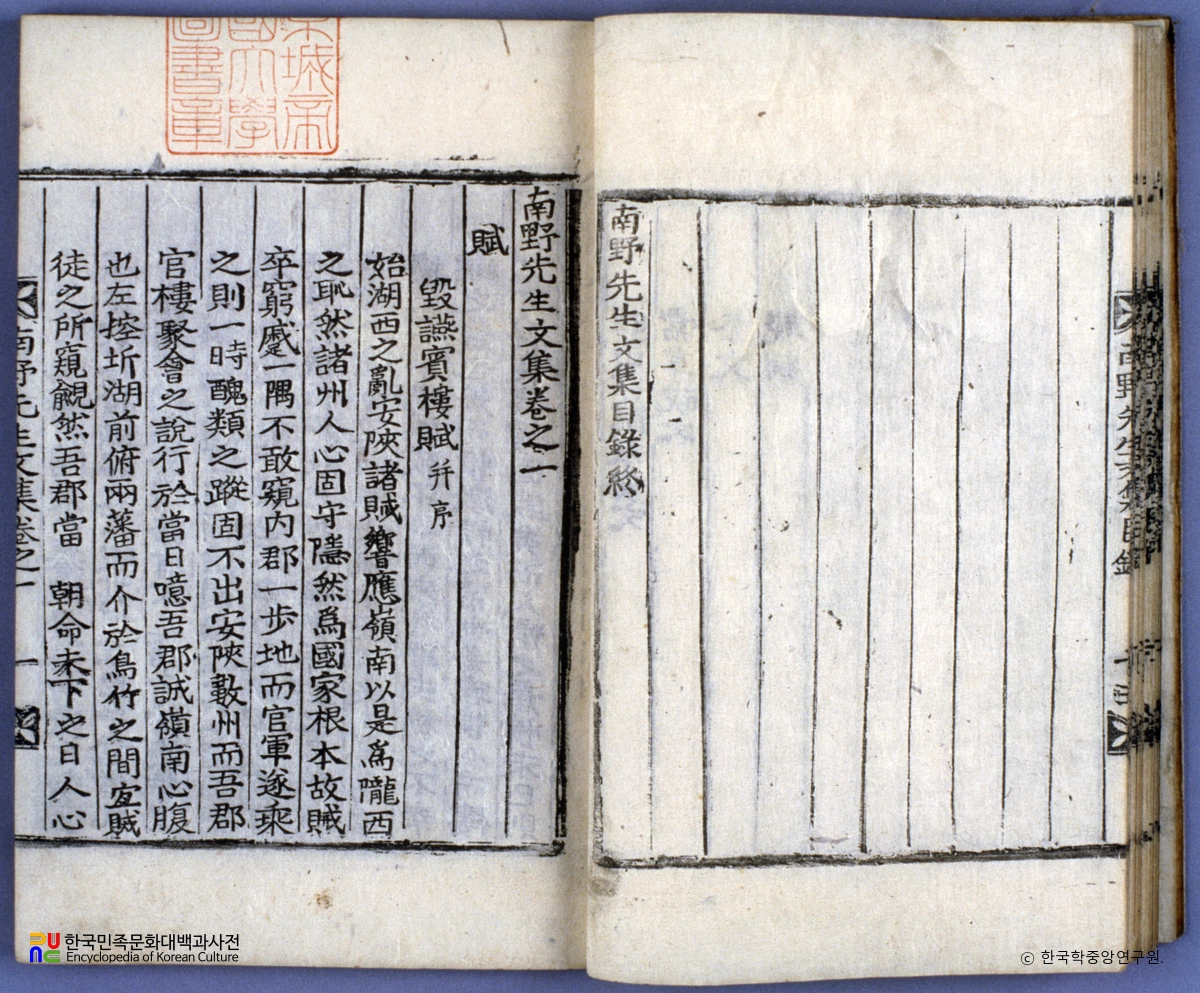 南野先生文集目錄終
南野先生文集卷之一
賦
毀讌賓樓賦 幷序
始湖西之亂安陜諸賊響應嶺南以是爲隴西
之恥然諸州人心固守隱然爲國家根本故賊
卒窮蹙一隅不敢窺內郡一步地而官軍遂乘
之則一時醜類之蹤固不出安陜數州而吾郡
官樓聚會之說行於當日噫吾郡誠嶺南心腹
也左控圻湖前俯兩藩而介於鳥竹之間宜賊
徒之所窺覦然吾郡當 朝命未下之日人心
南野先生文集卷之一
一
南野先生文集目錄
城帝
大學
圖書章
한국민족문화대백과사전
Encyclopedia of Korean Culture
ⓒ 한국학중앙연구원.